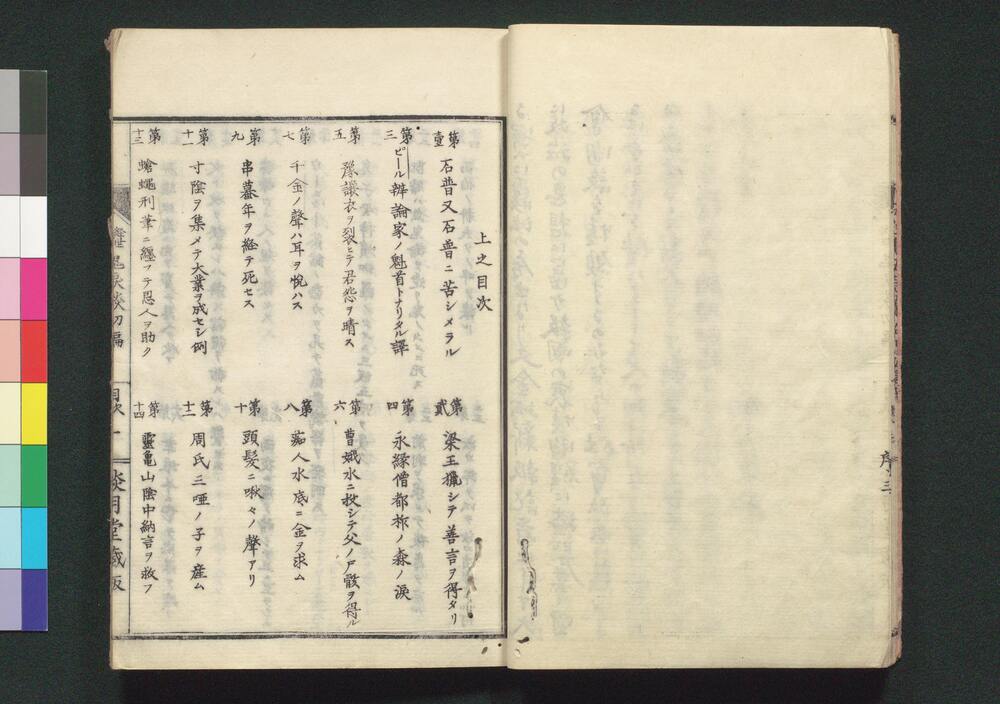 上之目次
第壹 石普又石普ニ苦シメラル
第貳 梁王獵シテ善言ヲ得タリ
第三 ピール辨論家ノ魁首トナリタル譯
第四 永縁僧都柞ノ森ノ涙
第五 豫讓衣ヲ裂ヒテ君怨ヲ晴ス
第六 曹娥水ニ投シテ父ノ尸骸ヲ得ル
第七 千金ノ聲ハ耳ヲ悅ハス
第八 痴人水底ニ金ヲ求ム
第九 串蟇年ヲ経テ死セス
第十 頭髮ニ啾々ノ聲アリ
第十一 寸陰ヲ集メテ大業ヲ成セシ例
第十二 周氏三唖ノ子ヲ産ム
第十三 蒼蠅刑筆ニ纏フテ恩人ヲ助ク
第十四 靈亀山陰中納言ヲ救フ
初編
目次 一
談月堂蔵版
序 三